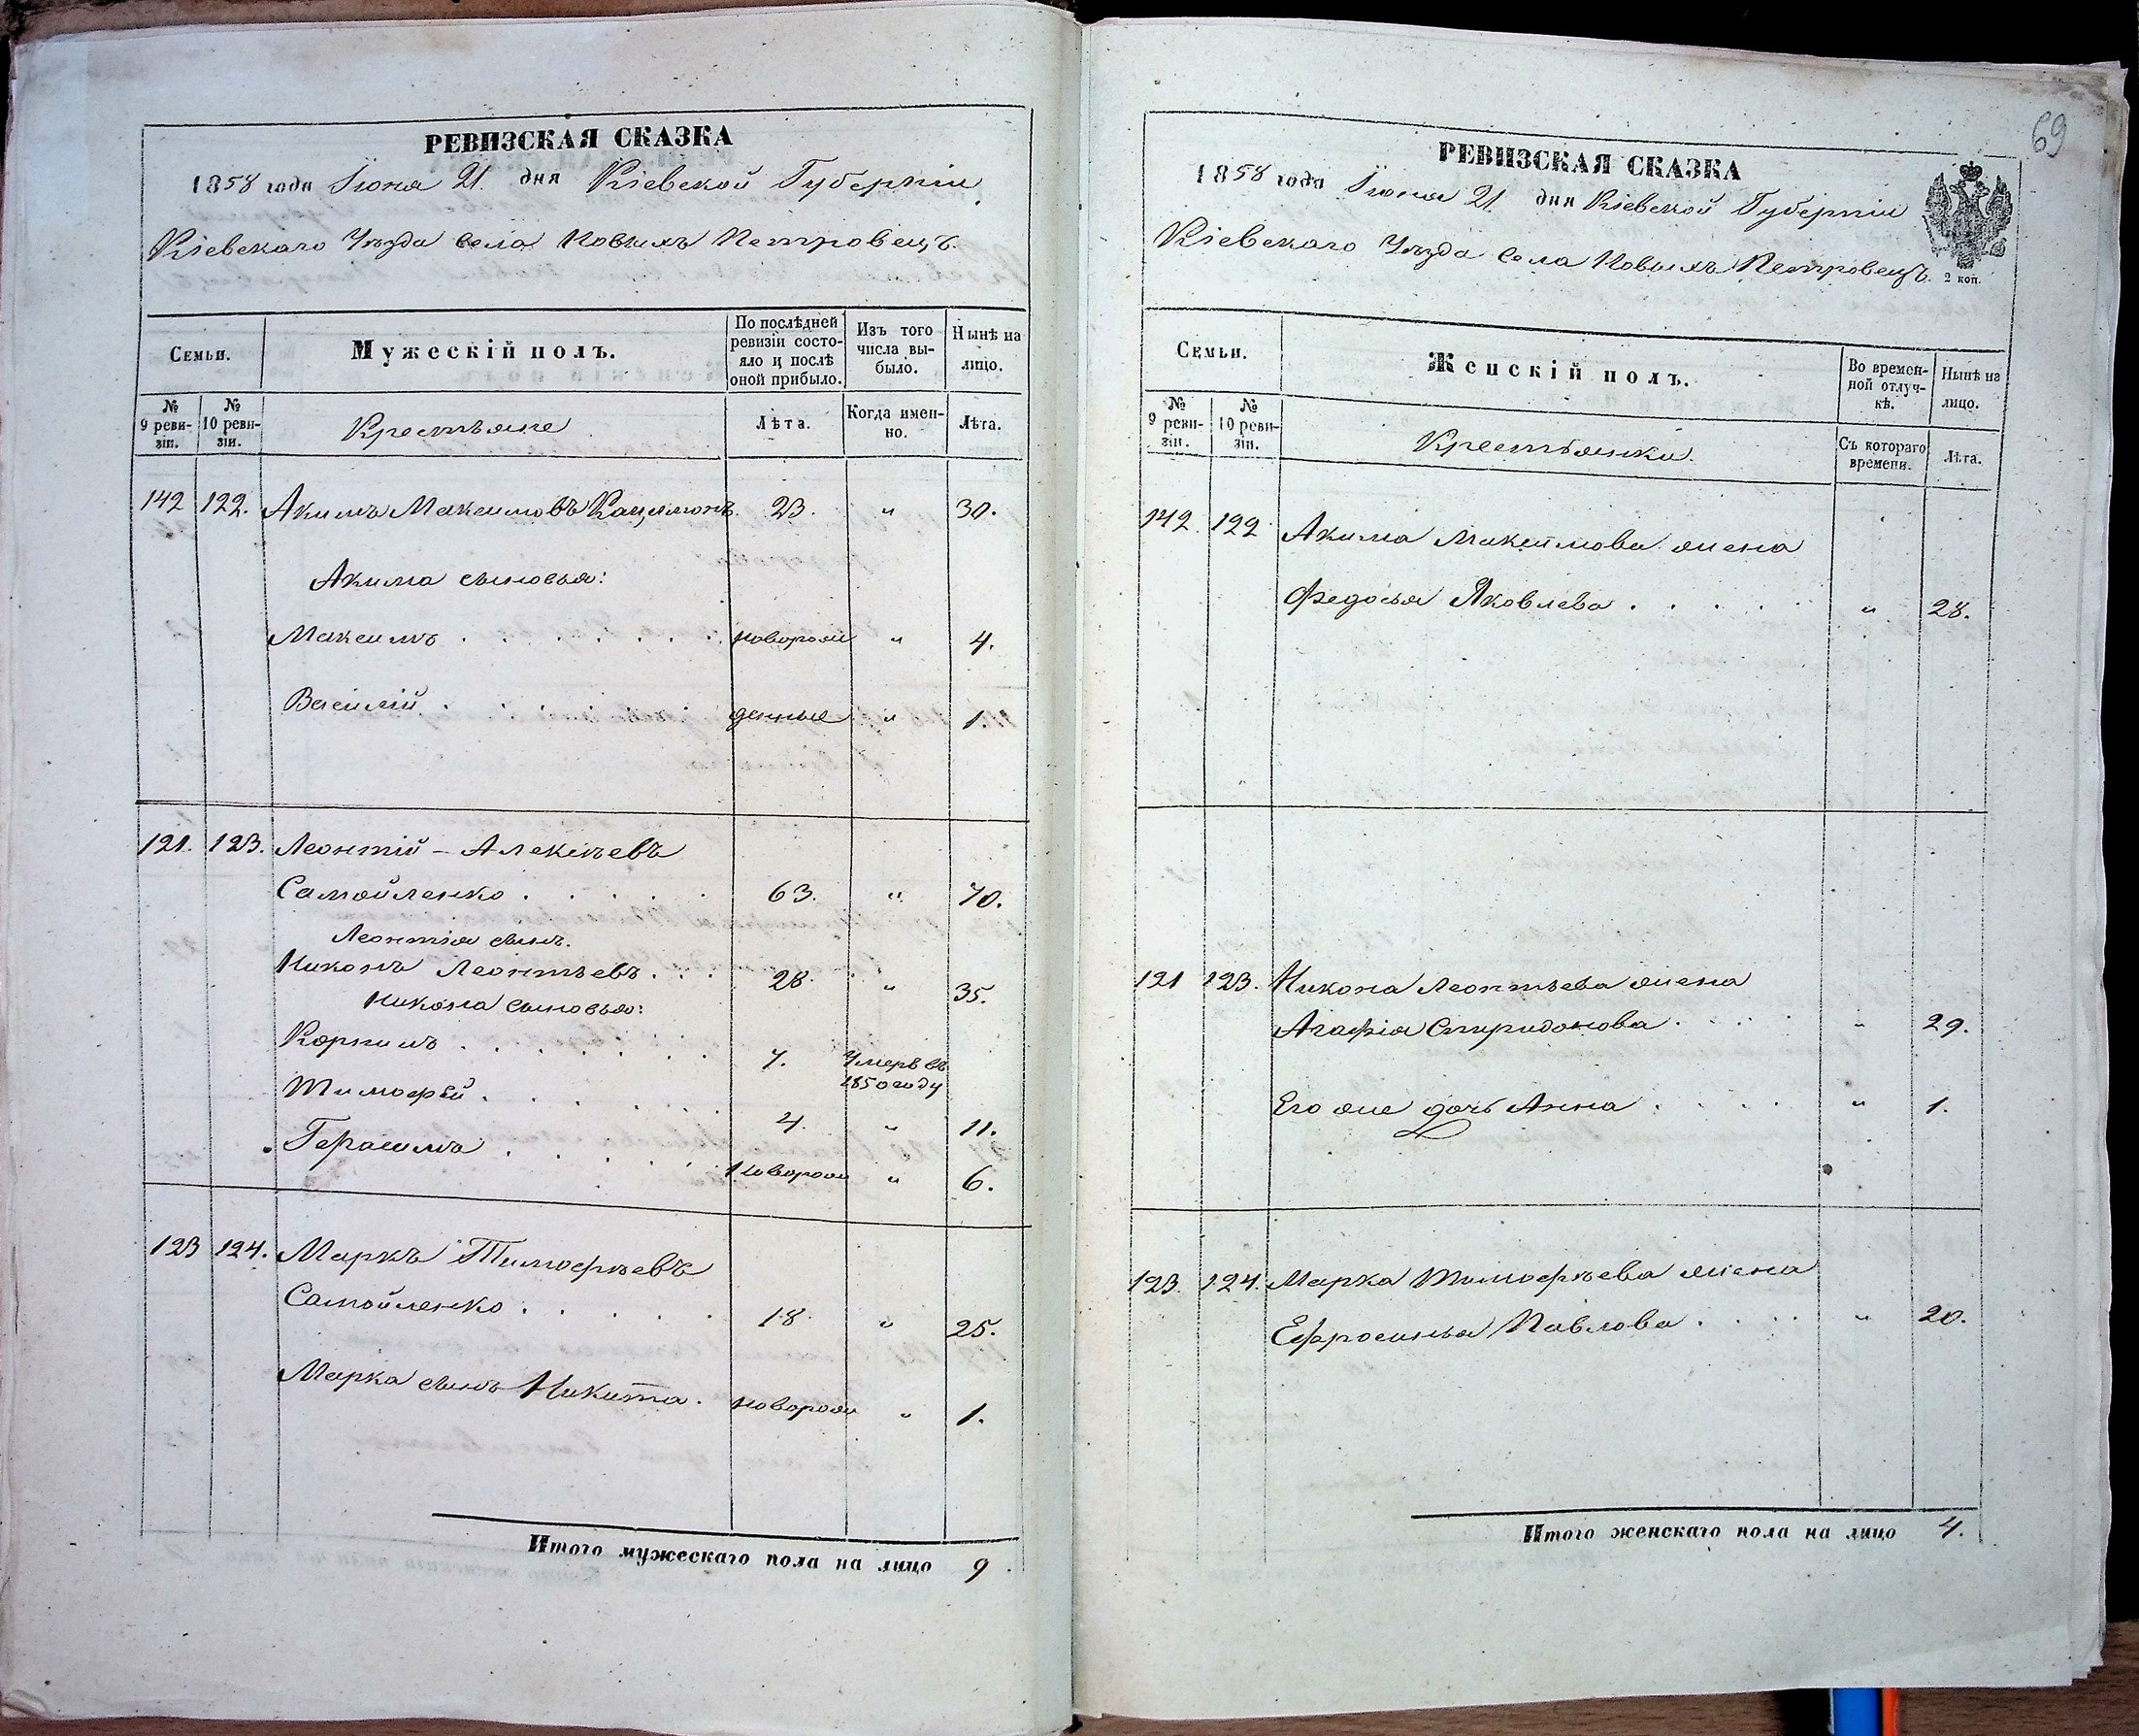 РЕВИЗСКАЯ СКАЗКА
1858 года Іюня 21. дня Кіевской Губерніи
Кіевскаго Уѣзда села Новыхъ Петровецъ.
Семьи.
Мужескій полъ.
По послѣдней ревизіи состояло и послѣ оной прибыло.
Изъ того числа выбыло.
Нынѣ на лицо.
№ 9 ревизіи.
№ 10 ревизіи.
Крестьяне
Лѣта.
Когда именно.
Лѣта.
142 122. Акимъ Максимовъ 23. " 30.
Акима сыновья:
Максимъ . . . . . . . новорож " 4.
Василій . . . . . . денные " 1.
121. 123. Леонтій - Алексѣевъ
Самойленко . . . . . 63. " 70.
Леонтія сынъ.
Никонъ Леонтьевъ . . . 28. " 35.
Никона сыновья:
Корнилъ . . . . . . . 7. Умеръ въ
1850 году
Тимофѣй . . . . . . 4. " 11.
Герасимъ . . . . . . Новорож " 6.
123 124. Маркъ Тимофѣевъ
Самойленко . . . . . 18. " 25.
Марка сынъ Никита . новорож " 1.
Итого мужескаго пола на лицо 9.
69
РЕВИЗСКАЯ СКАЗКА
1858 года Іюня 21. дня Кіевской Губерніи
Кіевскаго Уѣзда Села Новыхъ Петровецъ.
2 коп.
Семьи.
Женскій полъ.
Во временной отлучкѣ.
Нынѣ на лицо.
№ 9 ревизіи.
№ 10 ревизіи.
Крестьянки.
Съ котораго времени.
Лѣта.
142. 122 Акима Максимова жена
Федосья Яковлева . . . . . " 28.
121 123. Никона Леонтьева жена
Агафія Спиридонова . . . . " 29.
Его же дочь Анна . . . . " 1.
123. 124. Марка Тимофѣева жена
Ефросинья Павлова . . . . " 20.
Итого женскаго пола на лицо 4.